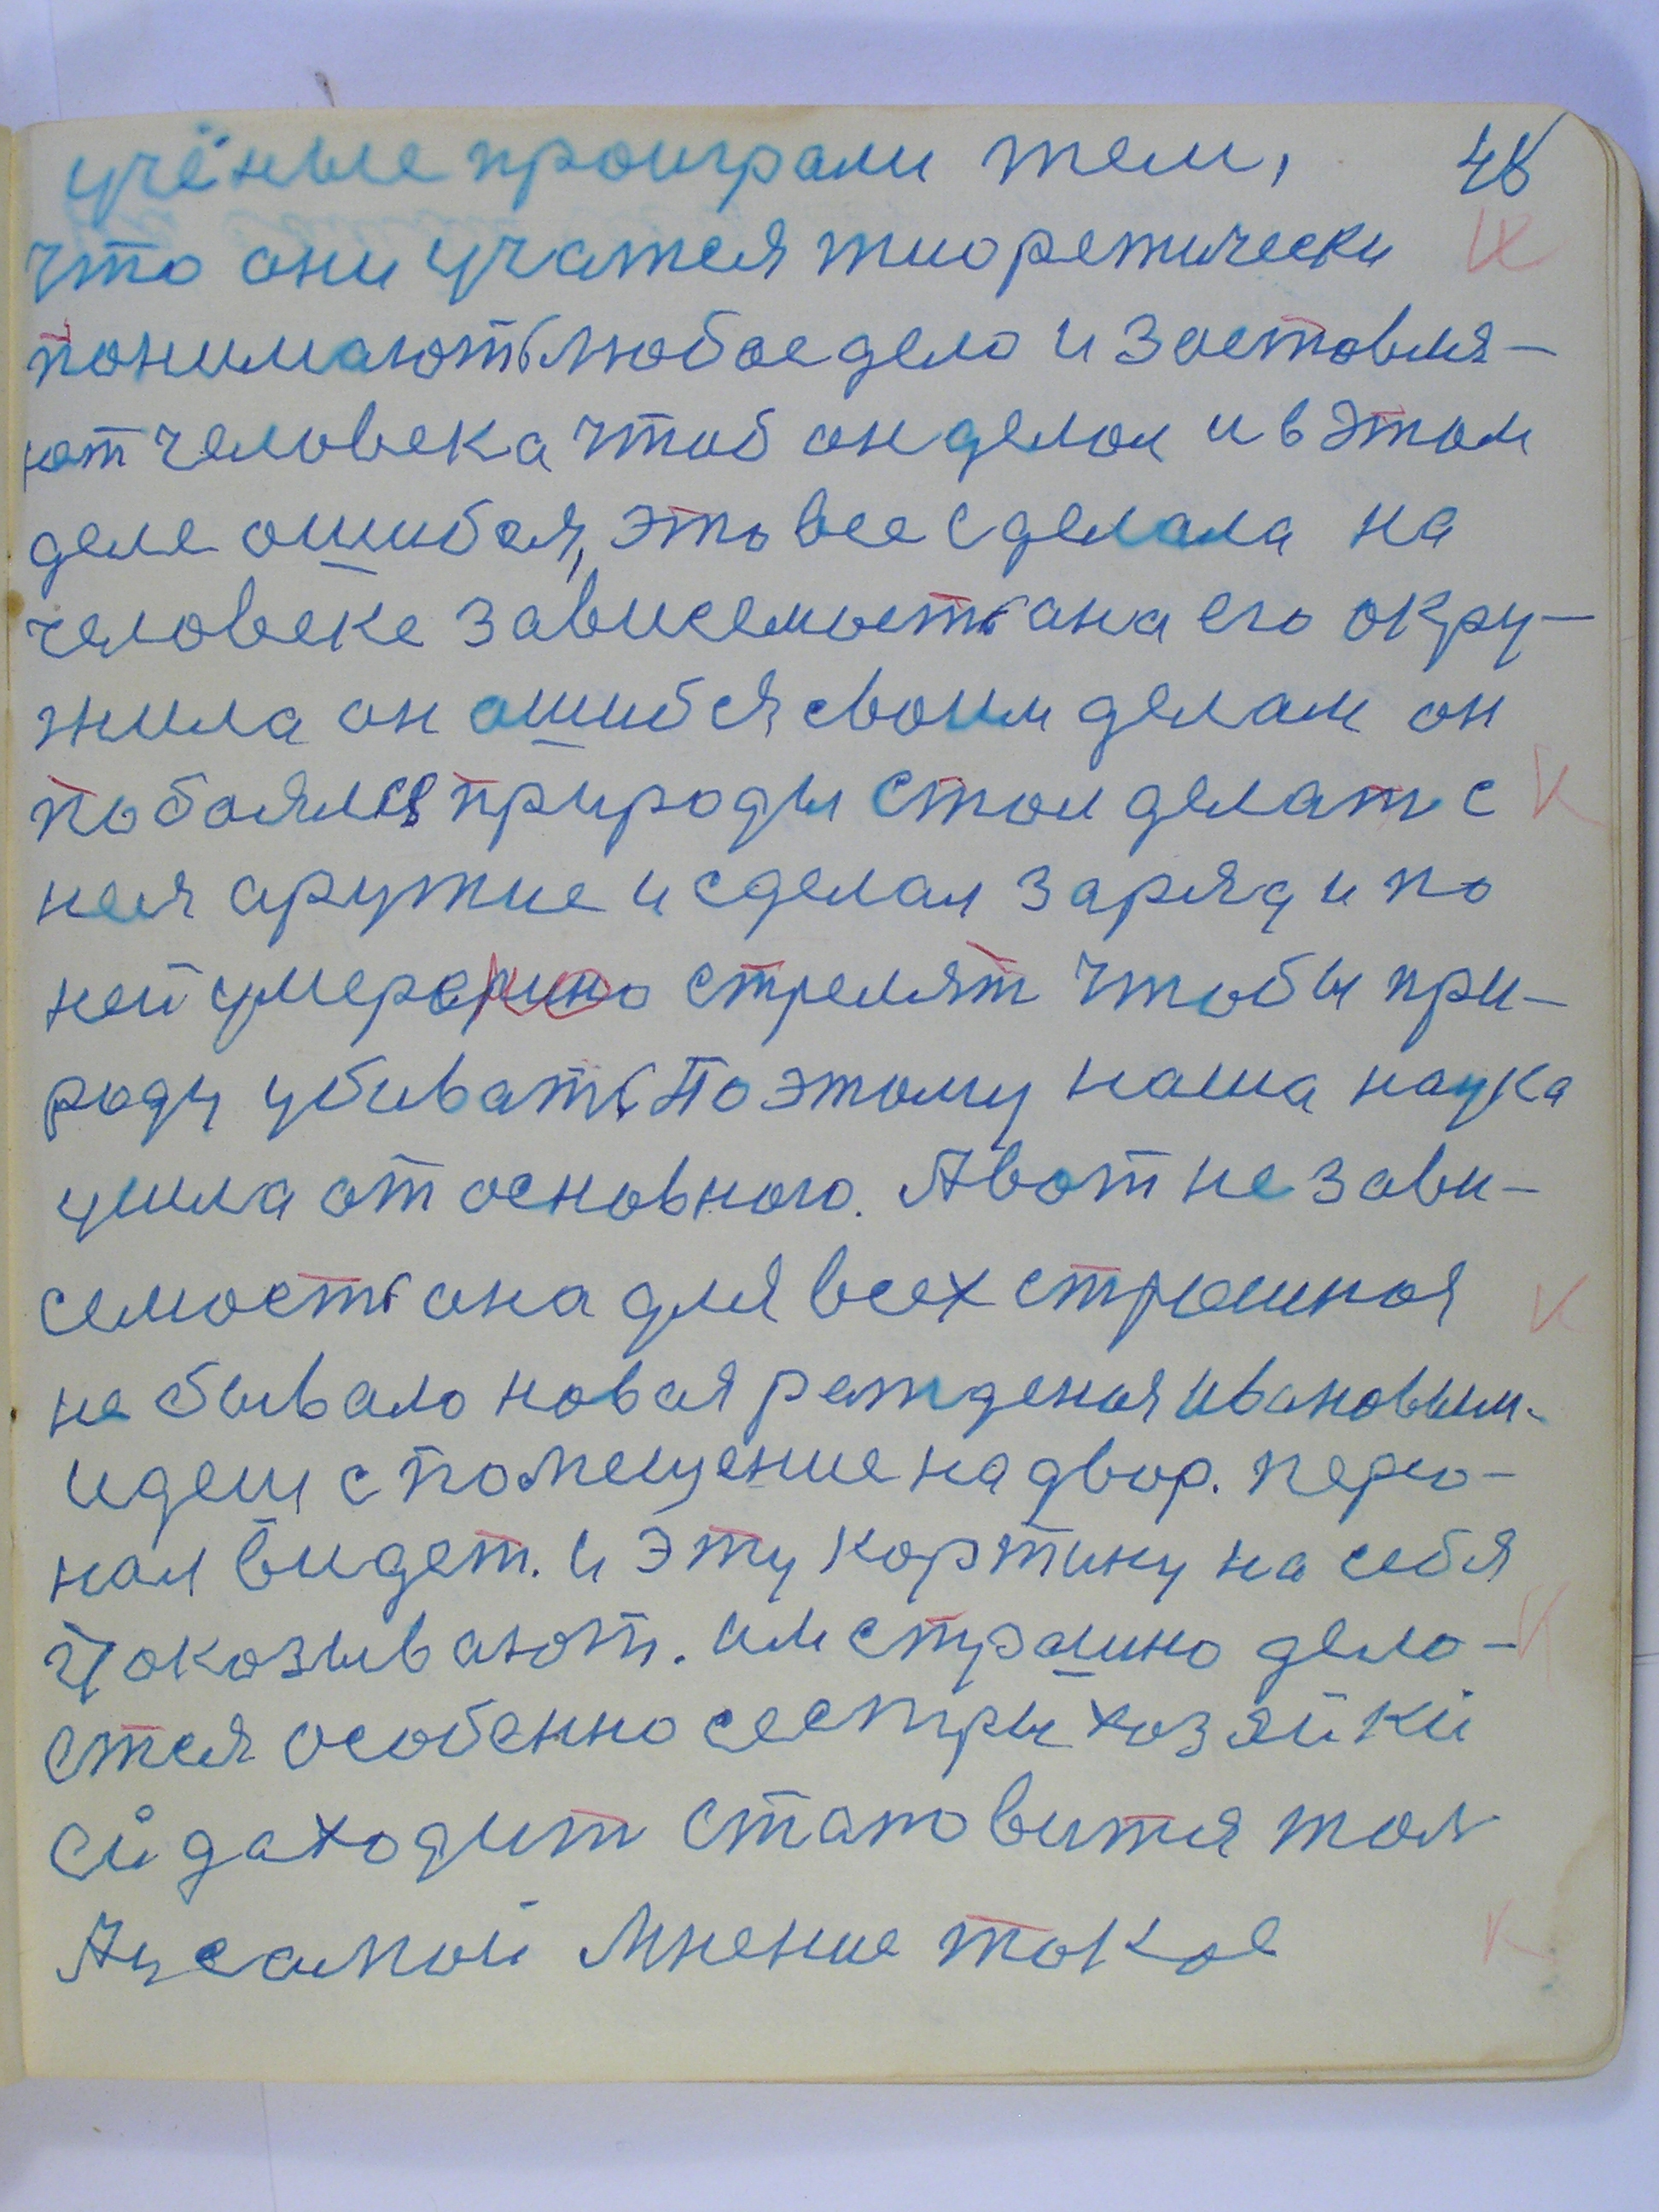 учёные проиграли тем, 48
что они учатся тиоретически
понимають любое дело и заставля-
ют человека чтоб он делал и в этом
деле ошибся, это все сделала на
человеке зависемость ана его окру-
жила он ошибся своим делам он
побоялся природы стал делать с
нея аружие и сделал заряд и по
ней умерено стрелят чтобы при-
роду убивать. По этому наша наука
ушла от основного. А вот не зави-
семость она для всех страшная
не бывало новая рождения ивановым.
идем с помещение на двор. персо-
нал видет. и эту картину на себя
показывают. им страшно дела-
ется особенно сестры хозяйки
ей даходит становится
А у самой мнение такое